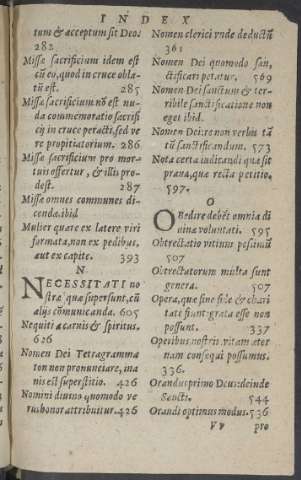 INDEX
tum & acceptum sit Deo.
282
Missa sacrificium idem est
cū eo, quod in cruce obla-
tū est. 285
Missa sacrificium nō est nu-
da commemoratio sacrifi
cij in cruce peracti, sed ve
re propitiatorium. 286
Missa sacrificium pro mor-
tuis offertur, & illis pro-
dest. 287
Missa omnes communes di-
cenda. ibid
Mulier quare ex latere viri
formata, non ex pedibus,
aut ex capite. 393
N
NECESSITATI no
stræ quæ supersunt, cū
alijs cōmunicanda. 605
Nequitia carnis & spiritus.
626
Nomen Dei Tetragramma
ton non pronunciare, ina
nis est superstitio. 426
Nomini diuino quomodo ve
rus honor attribuitur. 426
Nomen clerici vnde deductū
361
Nomen Dei quomodo san-
ctificari petatur. 569
Nomen Dei sanctum & ter-
ribile sanctificatione non
eget ibid.
Nomen Dei re non verbis tā
tū sanctificandum. 573
Nota certa iudicandi quæ sit
prana, quæ recta petitio.
597.
O
OBedire debēt omnia di
uinæ voluntati. 595
Obtrectatio vitium pessimū
507
Obtrectatorum multa sunt
genera. 507
Opera, quæ sine fide & chari
tate fiunt grata esse non
possunt. 337
Operibus nostris vitam æter
nam consequi possumus.
336.
Orandus primo Deus deinde
Sancti. 544
Orandi optimus modus. 536
Vv pro